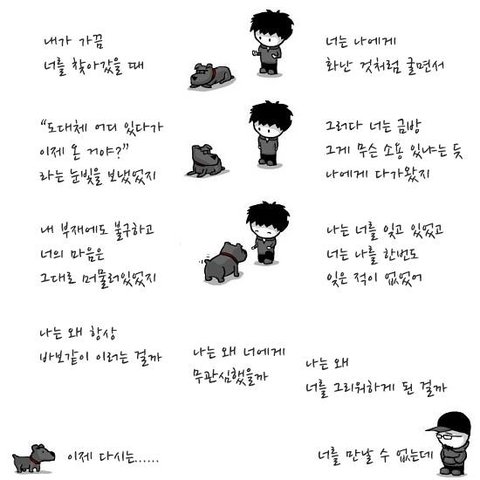 내가 가끔
너를 찾아갔을 때
너는 나에게
화난 것처럼 굴면서
“도대체 어디 있다가
이제 온 거야?”
라는 눈빛을 보냈었지
그러다 너는 금방
그게 무슨 소용 있냐는 듯
나에게 다가왔지
내 부재에도 불구하고
너의 마음은
그대로 머물러있었지
나는 너를 잊고 있었고
너는 나를 한번도
잊은 적이 없었어
나는 왜 항상
바보같이 이러는 걸까
나는 왜 너에게
무관심했을까
나는 왜
너를 그리워하게 된 걸까
이제 다시는......
너를 만날 수 없는데